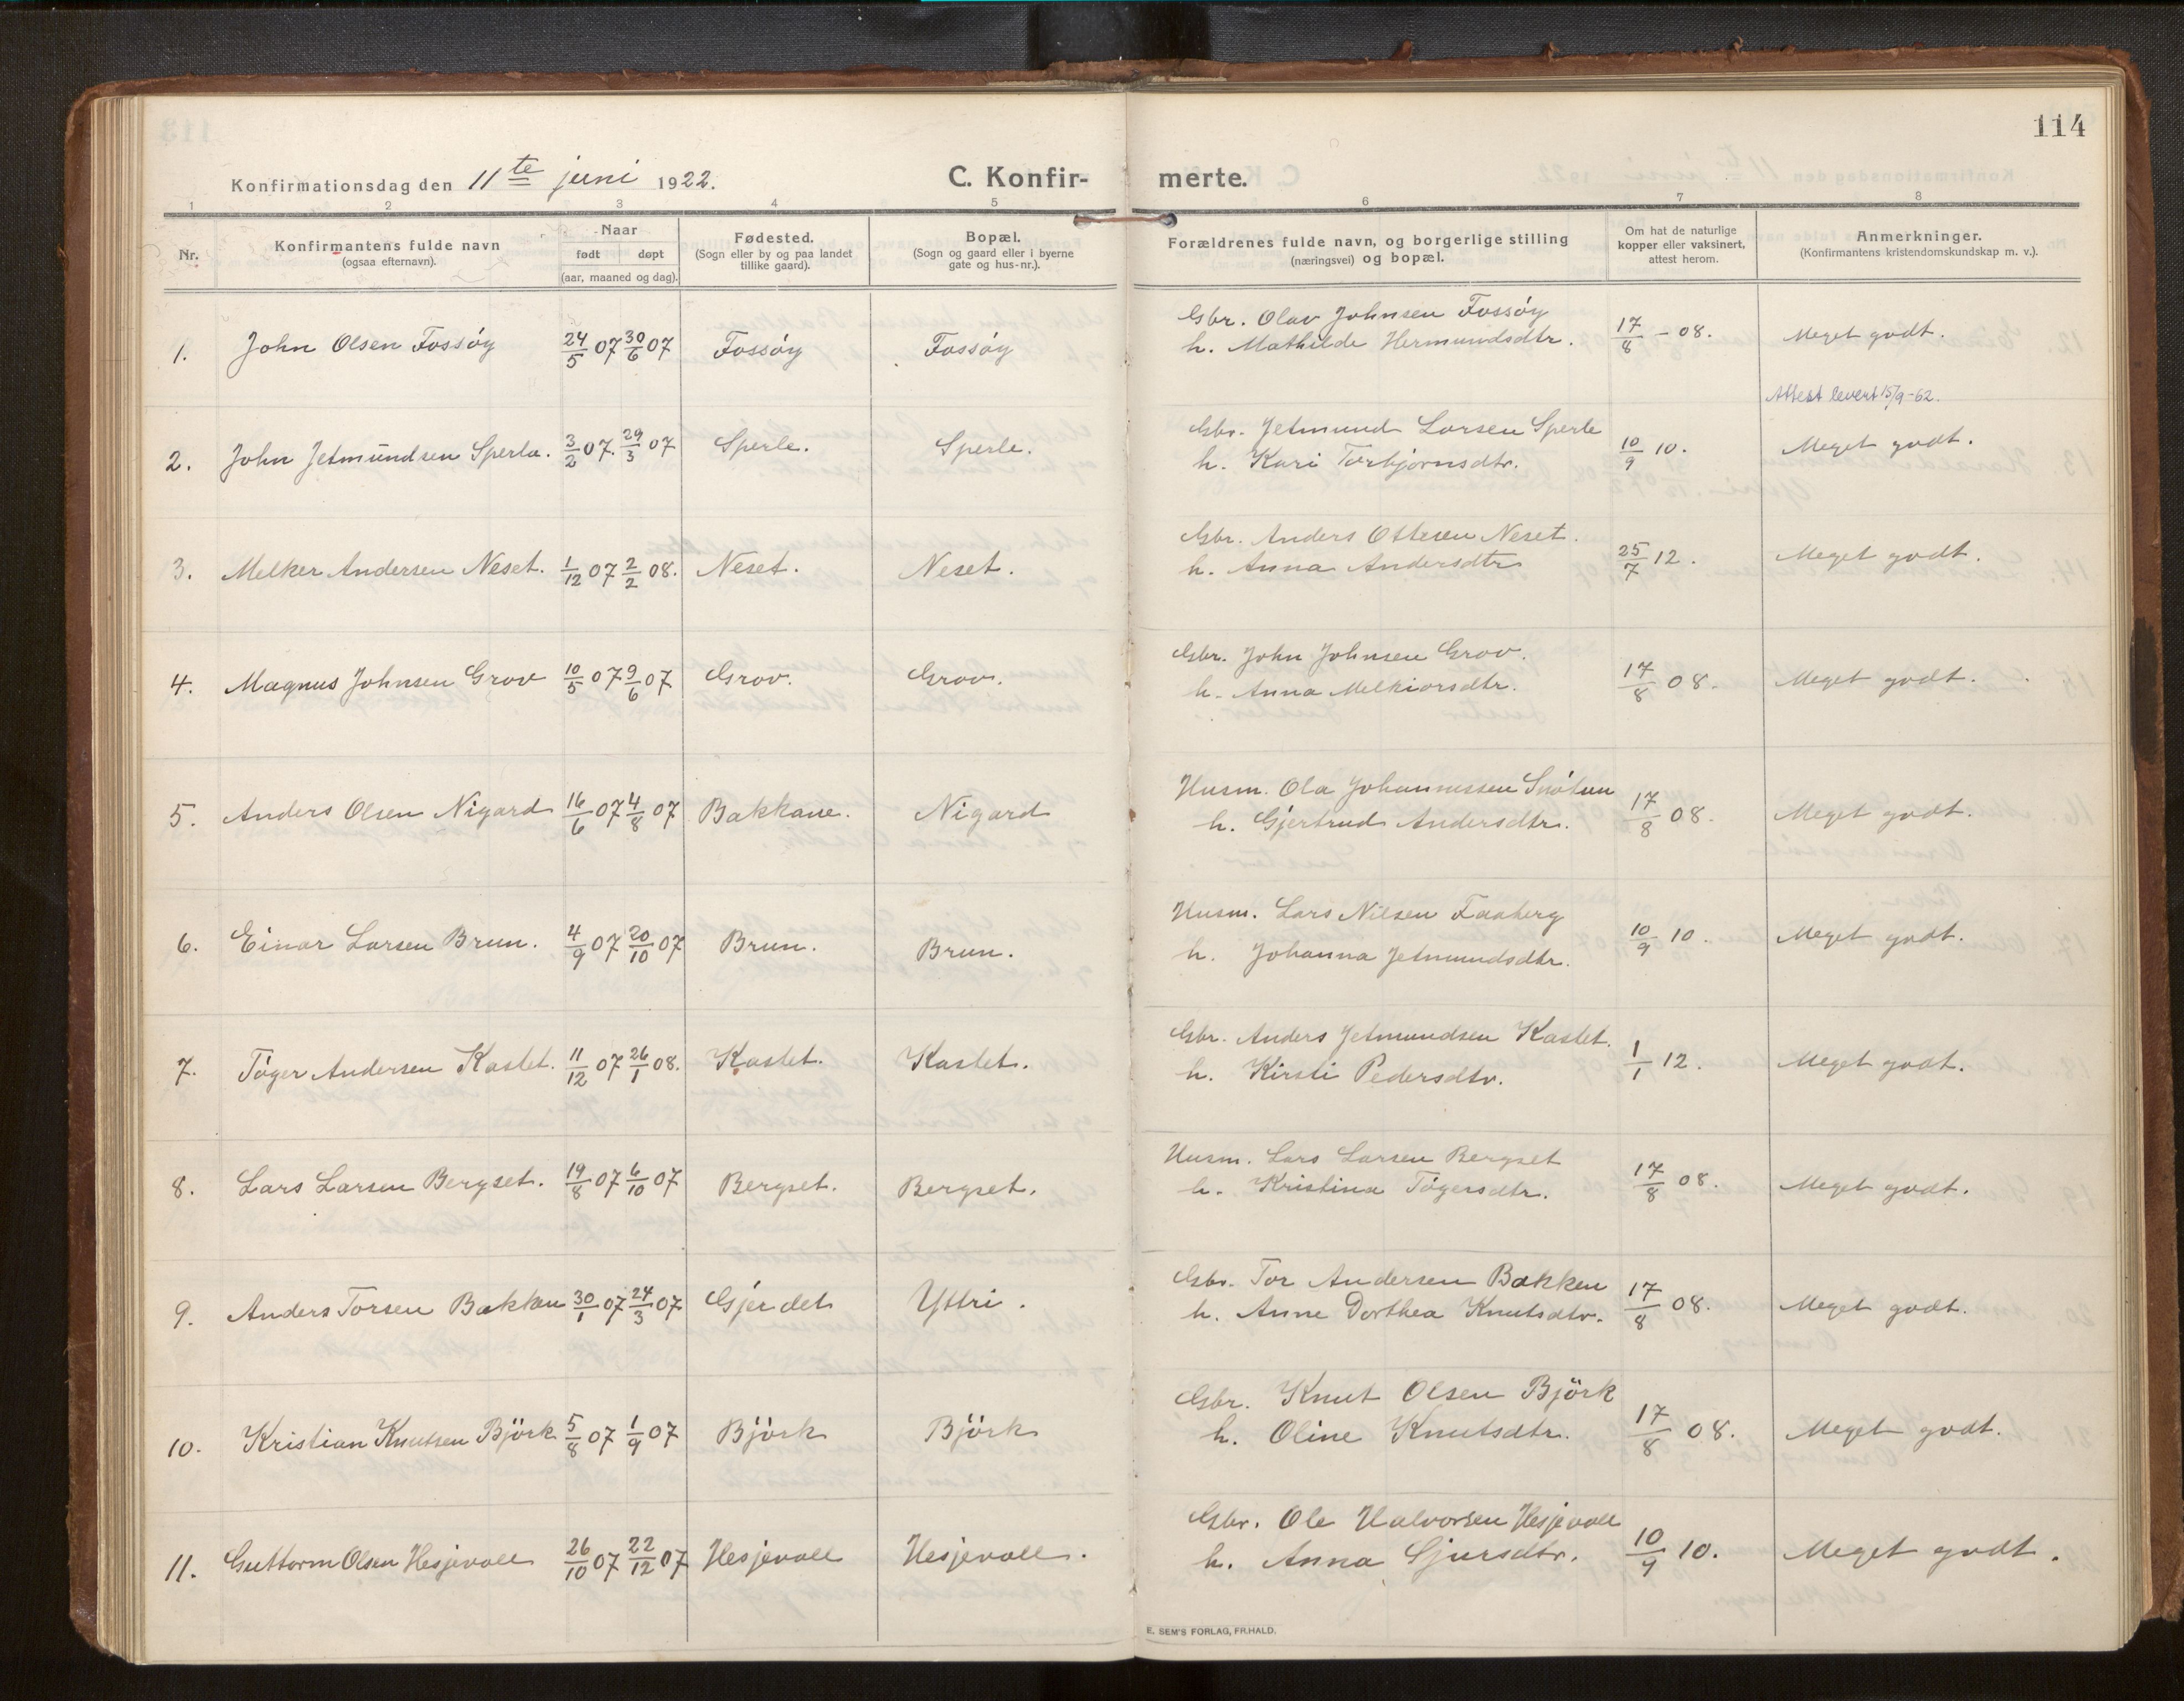 114
Konfirmationsdag den 11te juni 1922.
C. Konfirmerte.
1 2 3 4 5 6 7 8
Nr.
Konfirmantens fulde navn
(ogsaa efternavn).
Naar
født døpt
(aar, maaned og dag).
Fødested.
(Sogn eller by og paa landet
tillike gaard).
Bopæl.
(Sogn og gaard eller i byerne
gate og hus-nr.).
Forældrenes fulde navn, og borgerlige stilling
(næringsvei) og bopæl.
Om hat de naturlige
kopper eller vaksinert,
attest herom.
Anmerkninger.
(Konfirmantens kristendomskundskap m. v.).
1. John Olsen Fossøy 24/5 07 30/6 07 Fossøy Fossøy
Gbr. Olav Johnsen Fossøy
h. Mathilde Hermundsdtr. 17/8 - 08. Meget godt.
Attest levert 15/9-62.
2. John Jetmundsen Sperle. 3/2 07. 29/3 07 Sperle. Sperle.
Gbr. Jetmund Larsen Sperle
h. Kari Torbjørnsdtr. 10/9 10. Meget godt.
3. Melker Andersen Neset. 1/12 07 2/2 08. Neset. Neset.
Gbr. Anders Ottesen Neset.
h. Anna Andersdtr 25/7 12. Meget godt.
4. Magnus Johnsen Grov 10/5 07 9/6 07 Grov. Grov.
Gbr. John Johnsen Grov.
h. Anna Melkiorsdtr. 17/8 08. Meget godt.
5. Anders Olsen Nigard 16/6 07 4/8 07 Bakkane. Nigard
Husm. Ola Johannessen Snøtun
h. Gjertrud Andersdtr. 17/8 08. Meget godt.
6. Einar Larsen Brun. 4/9 07 20/10 07 Brun. Brun.
Husm. Lars Nilsen Faaberg
h. Johanna Jetmundsdtr. 10/9 10. Meget godt.
7. Tøger Andersen Kastet. 11/12 07 26/1 08. Kastet. Kastet.
Gbr. Anders Jetmundsen Kastet.
h. Kirsti Pedersdtr. 1/1 12. Meget godt.
8. Lars Larsen Bergset. 19/8 07 6/10 07 Bergset. Bergset.
Husm. Lars Larsen Bergset
h. Kristina Tøgersdtr. 17/8 08. Meget godt.
9. Anders Torsen Bakken 30/1 07 24/3 07 Gjerdet Yttri.
Gbr. Tor Andersen Bakken
h. Anne Dorthea Knutsdtr. 17/8 08. Meget godt.
10. Kristian Knutsen Björk 5/8 07 1/9 07 Björk Björk
Gbr. Knut Olsen Björk
h. Oline Knutsdtr. 17/8 08. Meget godt.
11. Guttorm Olsen Hesjevoll 26/10 07 22/12 07 Hesjevoll Hesjevoll.
Gbr. Ole Halvorsen Hesjevoll
h. Anna Sjursdtr. 10/9 10. Meget godt.
E. SEM'S FORLAG, FR.HALD.